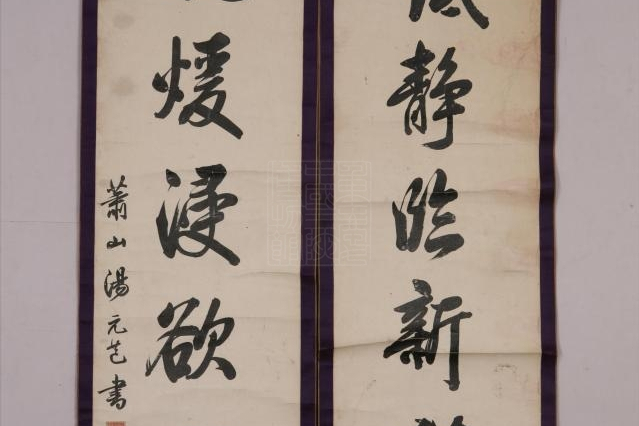 静臨新
煖浸欲
蕭山湯元芑書